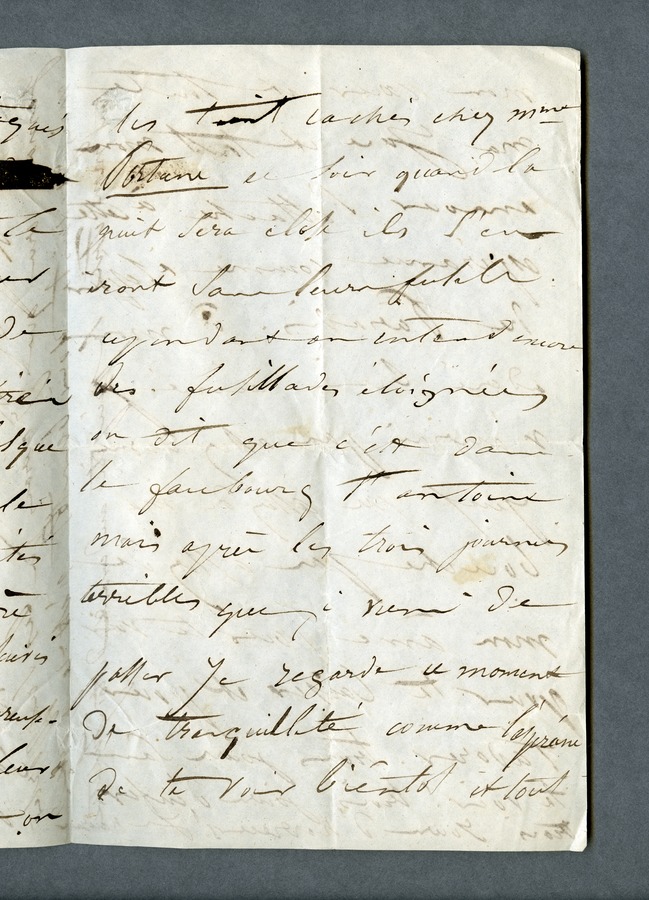 les tient cachés chez mme
Portune ce soir quand la
nuit sera close ils s'en
iront sans leurs fusils.
cependant on entend encore
des fusillades éloignées
on dit que c'est dans
le faubourg St antoine
mais après les trois journées
terribles que je viens de
passer je regarde ce moment
de tranquillité comme l'espérance
de te voir bientôt et tout